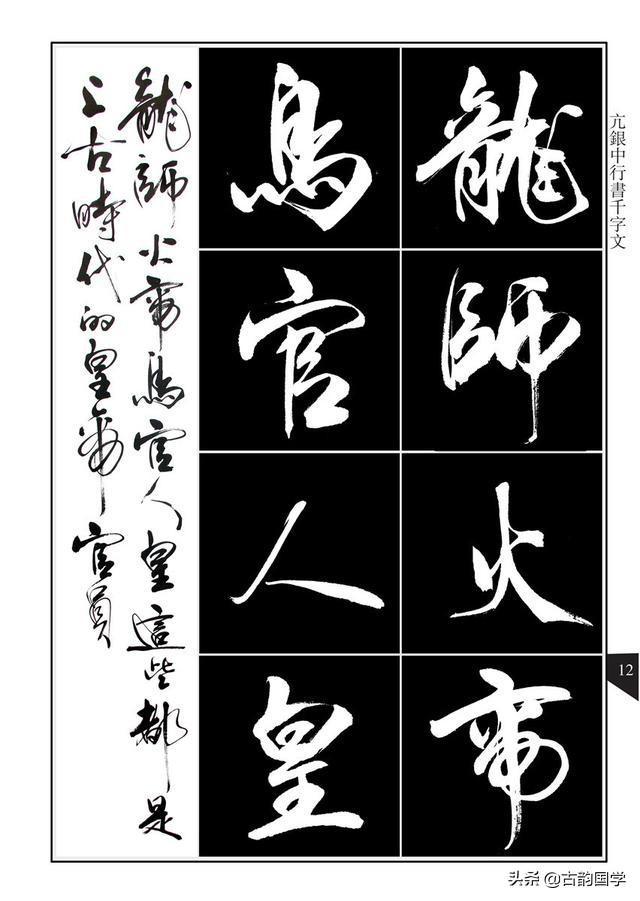 亢銀中行書千字文
12
龍師火帝
鳥官人皇
龍師火帝鳥官人皇這些都是
上古時代的皇帝官員
头条 @古韵国学